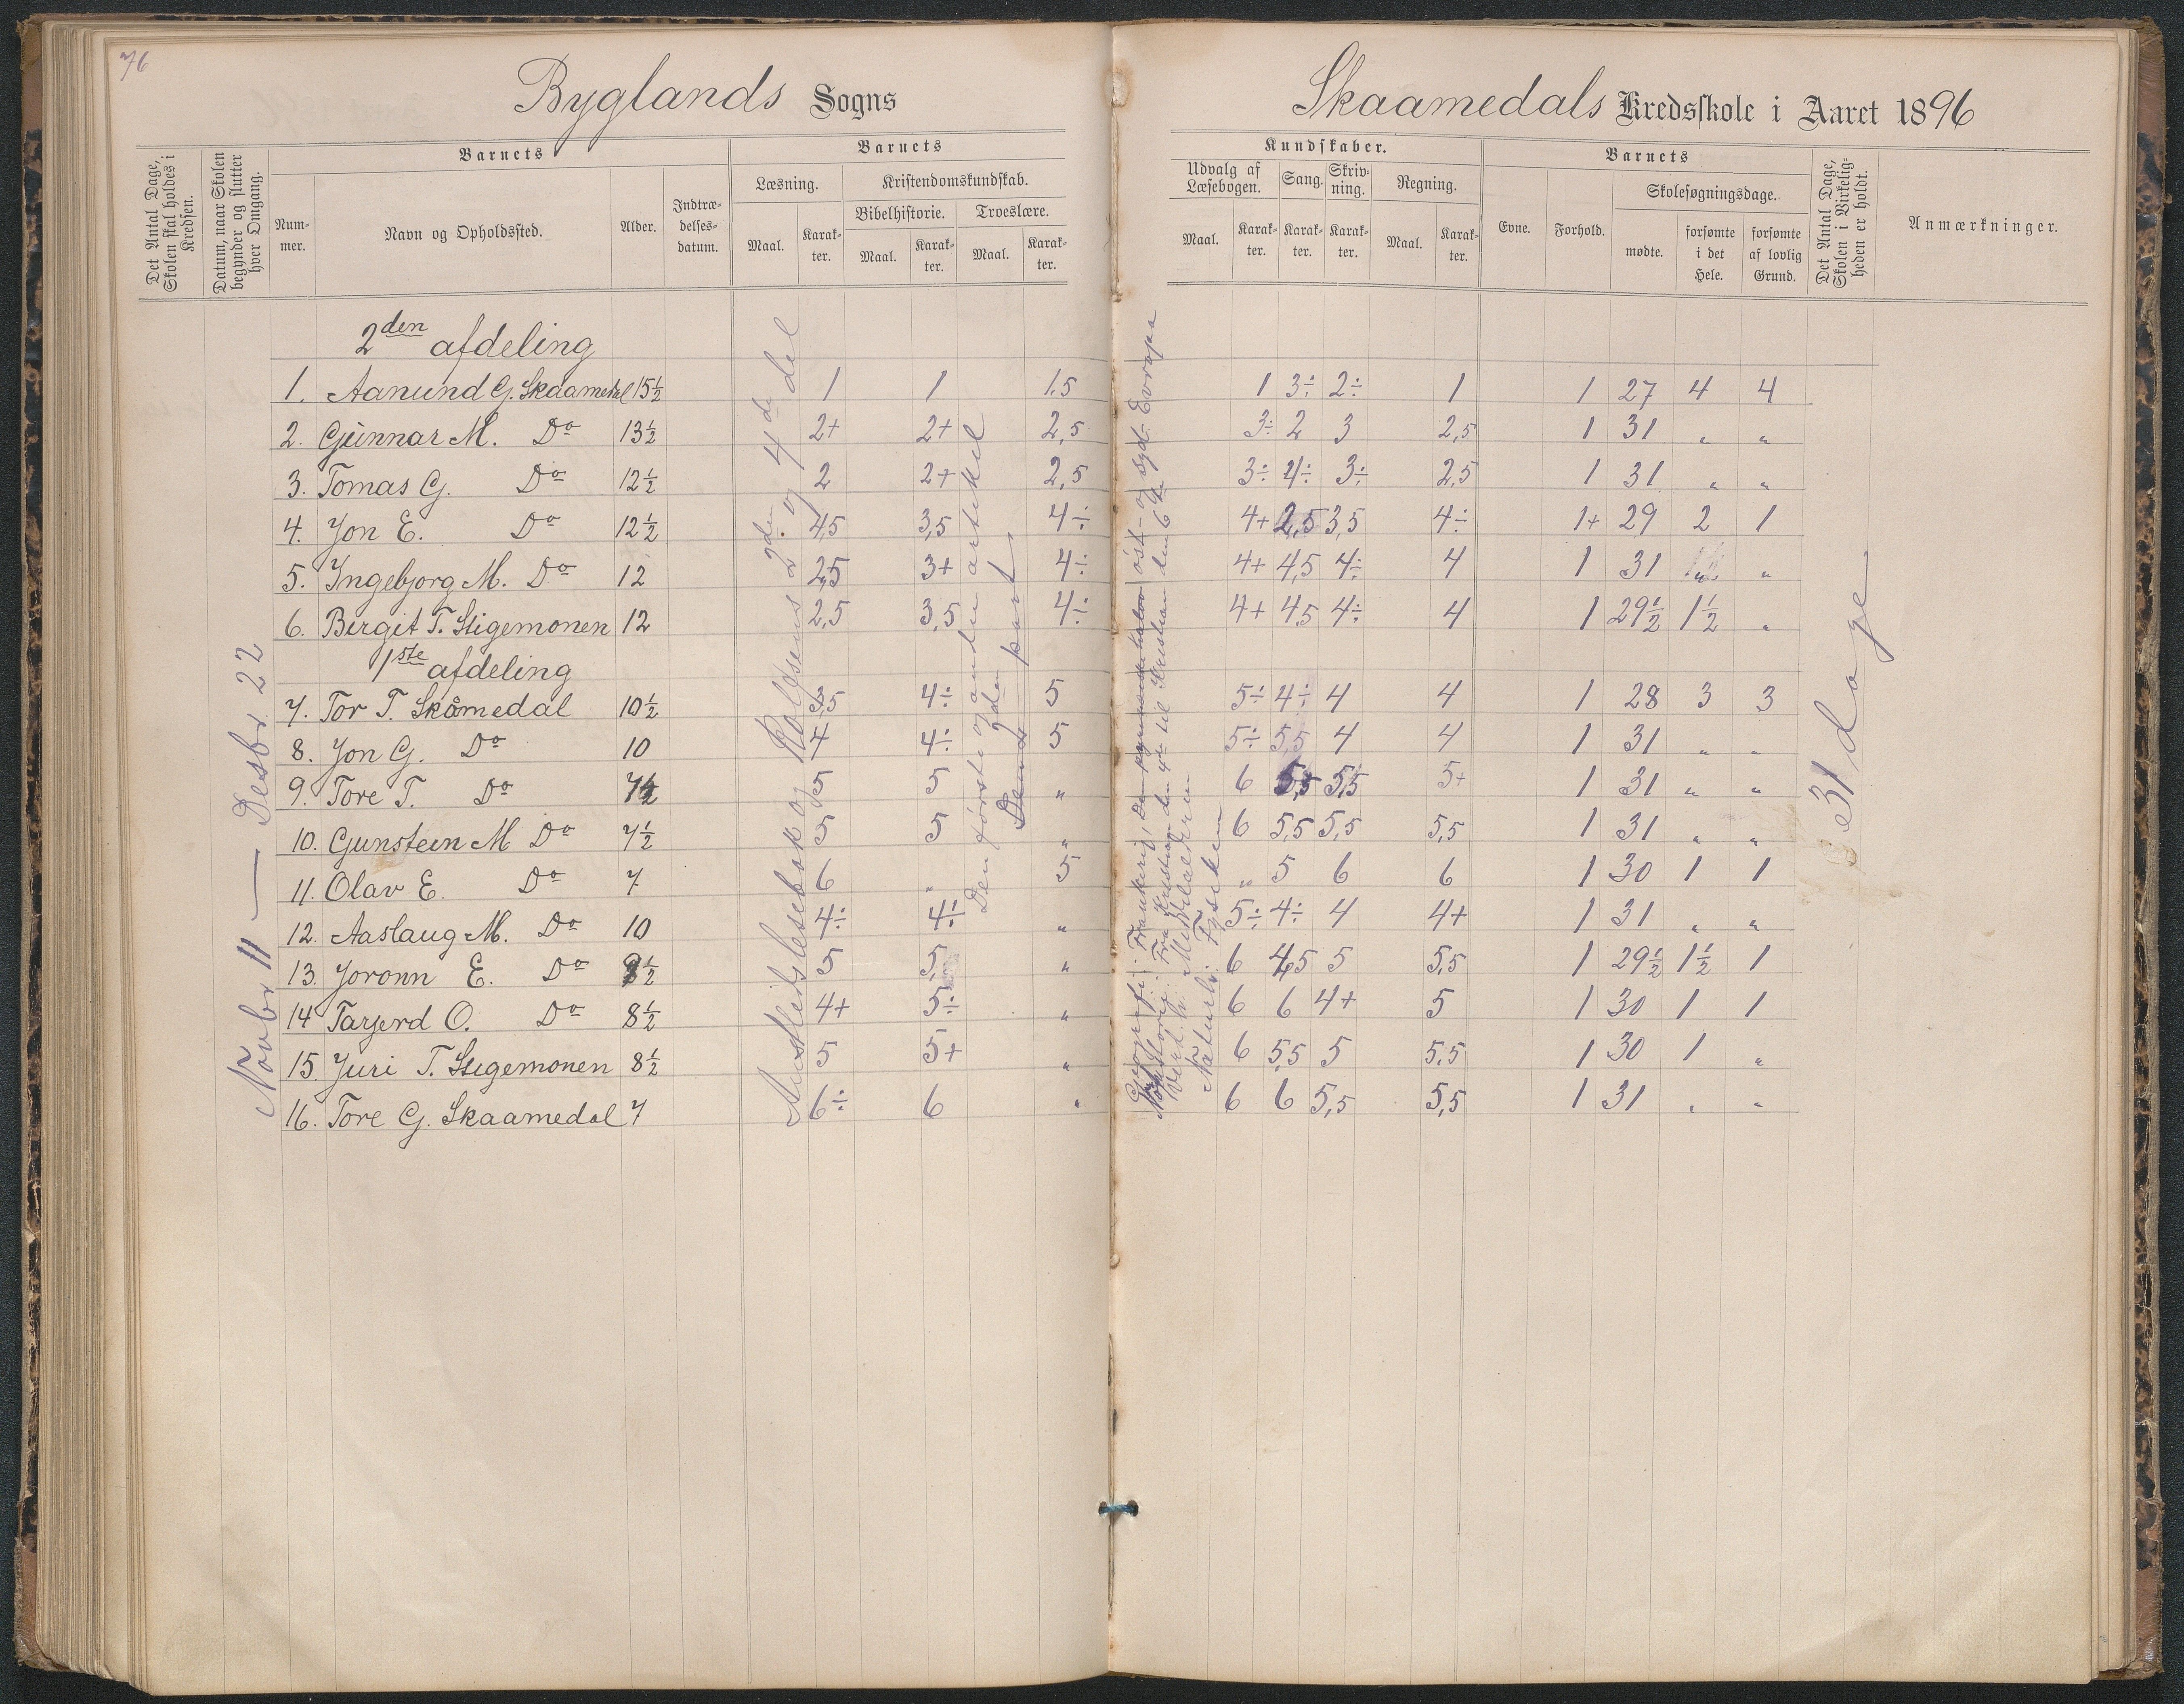 76
Byglands Sogns
Skaamedals Kredsskole i Aaret 1896
Det Antal Dage, Skolen skal holdes i Kredsen.
Datum, naar Skolen begynder og slutter hver Omgang.
Barnets
Nummer.
Navn og Opholdssted.
Alder.
Indtrædelsesdatum.
Barnets
Læsning.
Kristendomskundskab.
Bibelhistorie.
Troeslære.
Maal.
Karakter.
Maal.
Karakter.
Maal.
Karakter.
Kundskaber.
Udvalg af Læsebogen.
Sang.
Skrivning.
Regning.
Maal.
Karakter.
Karakter.
Karakter.
Maal.
Karakter.
Barnets
Evne.
Forhold.
Skolesøgningsdage.
mødte.
forsømte i det Hele.
forsømte af lovlig Grund.
Det Antal Dage, Skolen i Virkeligheden er holdt.
Anmærkninger.
2den afdeling
1. Aanund G. Skaamedal 15½ 1 1 1.5 1 3÷ 2÷ 1 1 27 4 4
2. Gunnar M. Do 13½ 2+ 2+ 2,5 3÷ 2 3 2,5 1 31 " "
3. Tomas G. Do 12½ 2 2+ 2,5 3÷ 4÷ 3÷ 2,5 1 31 " "
4. Jon E. Do 12½ 4,5 3,5 4÷ 4+ 2,5 3,5 4÷ 1+ 29 2 1
5. Ingebjorg M. Do 12 2,5 3+ 4÷ 4+ 4,5 4÷ 4 1 31 " "
6. Birgit T. Stigemonen 12 2,5 3,5 4÷ 4+ 4,5 4÷ 4 1 29½ 1½ "
1ste afdeling
7. Tor T. Skåmedal 10½ 3,5 4÷ 5 5÷ 4÷ 4 4 1 28 3 3
8. Jon G. Do 10 4 4÷ 5 5÷ 5,5 4 4 1 31 " "
9. Tore T. Do 7½ 5 5 " 6 5,5 5,5 5+ 1 31 " "
10. Gunsteen M Do 7½ 5 5 " 6 5,5 5,5 5,5 1 31 " "
11. Olav E. Do 7 6 " 5 " 5 6 6 1 30 1 1
12. Aaslaug M. Do 10 4÷ 4÷ " 5÷ 4÷ 4 4+ 1 31 " "
13. Joronn E. Do 9½ 5 5 " 6 4,5 5 5,5 1 29½ 1½ 1
14 Targerd O. Do 8½ 4+ 5÷ " 6 6 4+ 5 1 30 1 1
15. Juri T. Stigemonen 8½ 5 5+ " 6 5,5 5 5,5 1 30 1 "
16. Tore G. Skaamedal 7 6÷ 6 " 6 6 5,5 5,5 1 31 " "
Novbr 11 — Desbr. 22
Austlids lesebok og Rolfsens 2den og 4de del
Den første og anden artikel
2den part
Geografi: Frankrig, Den øst- og syd-Europa
Fra Kristian den 4de til Kristian den 6te
Verd. h. Middelalderen
Naturh. Fysiken
31 dage